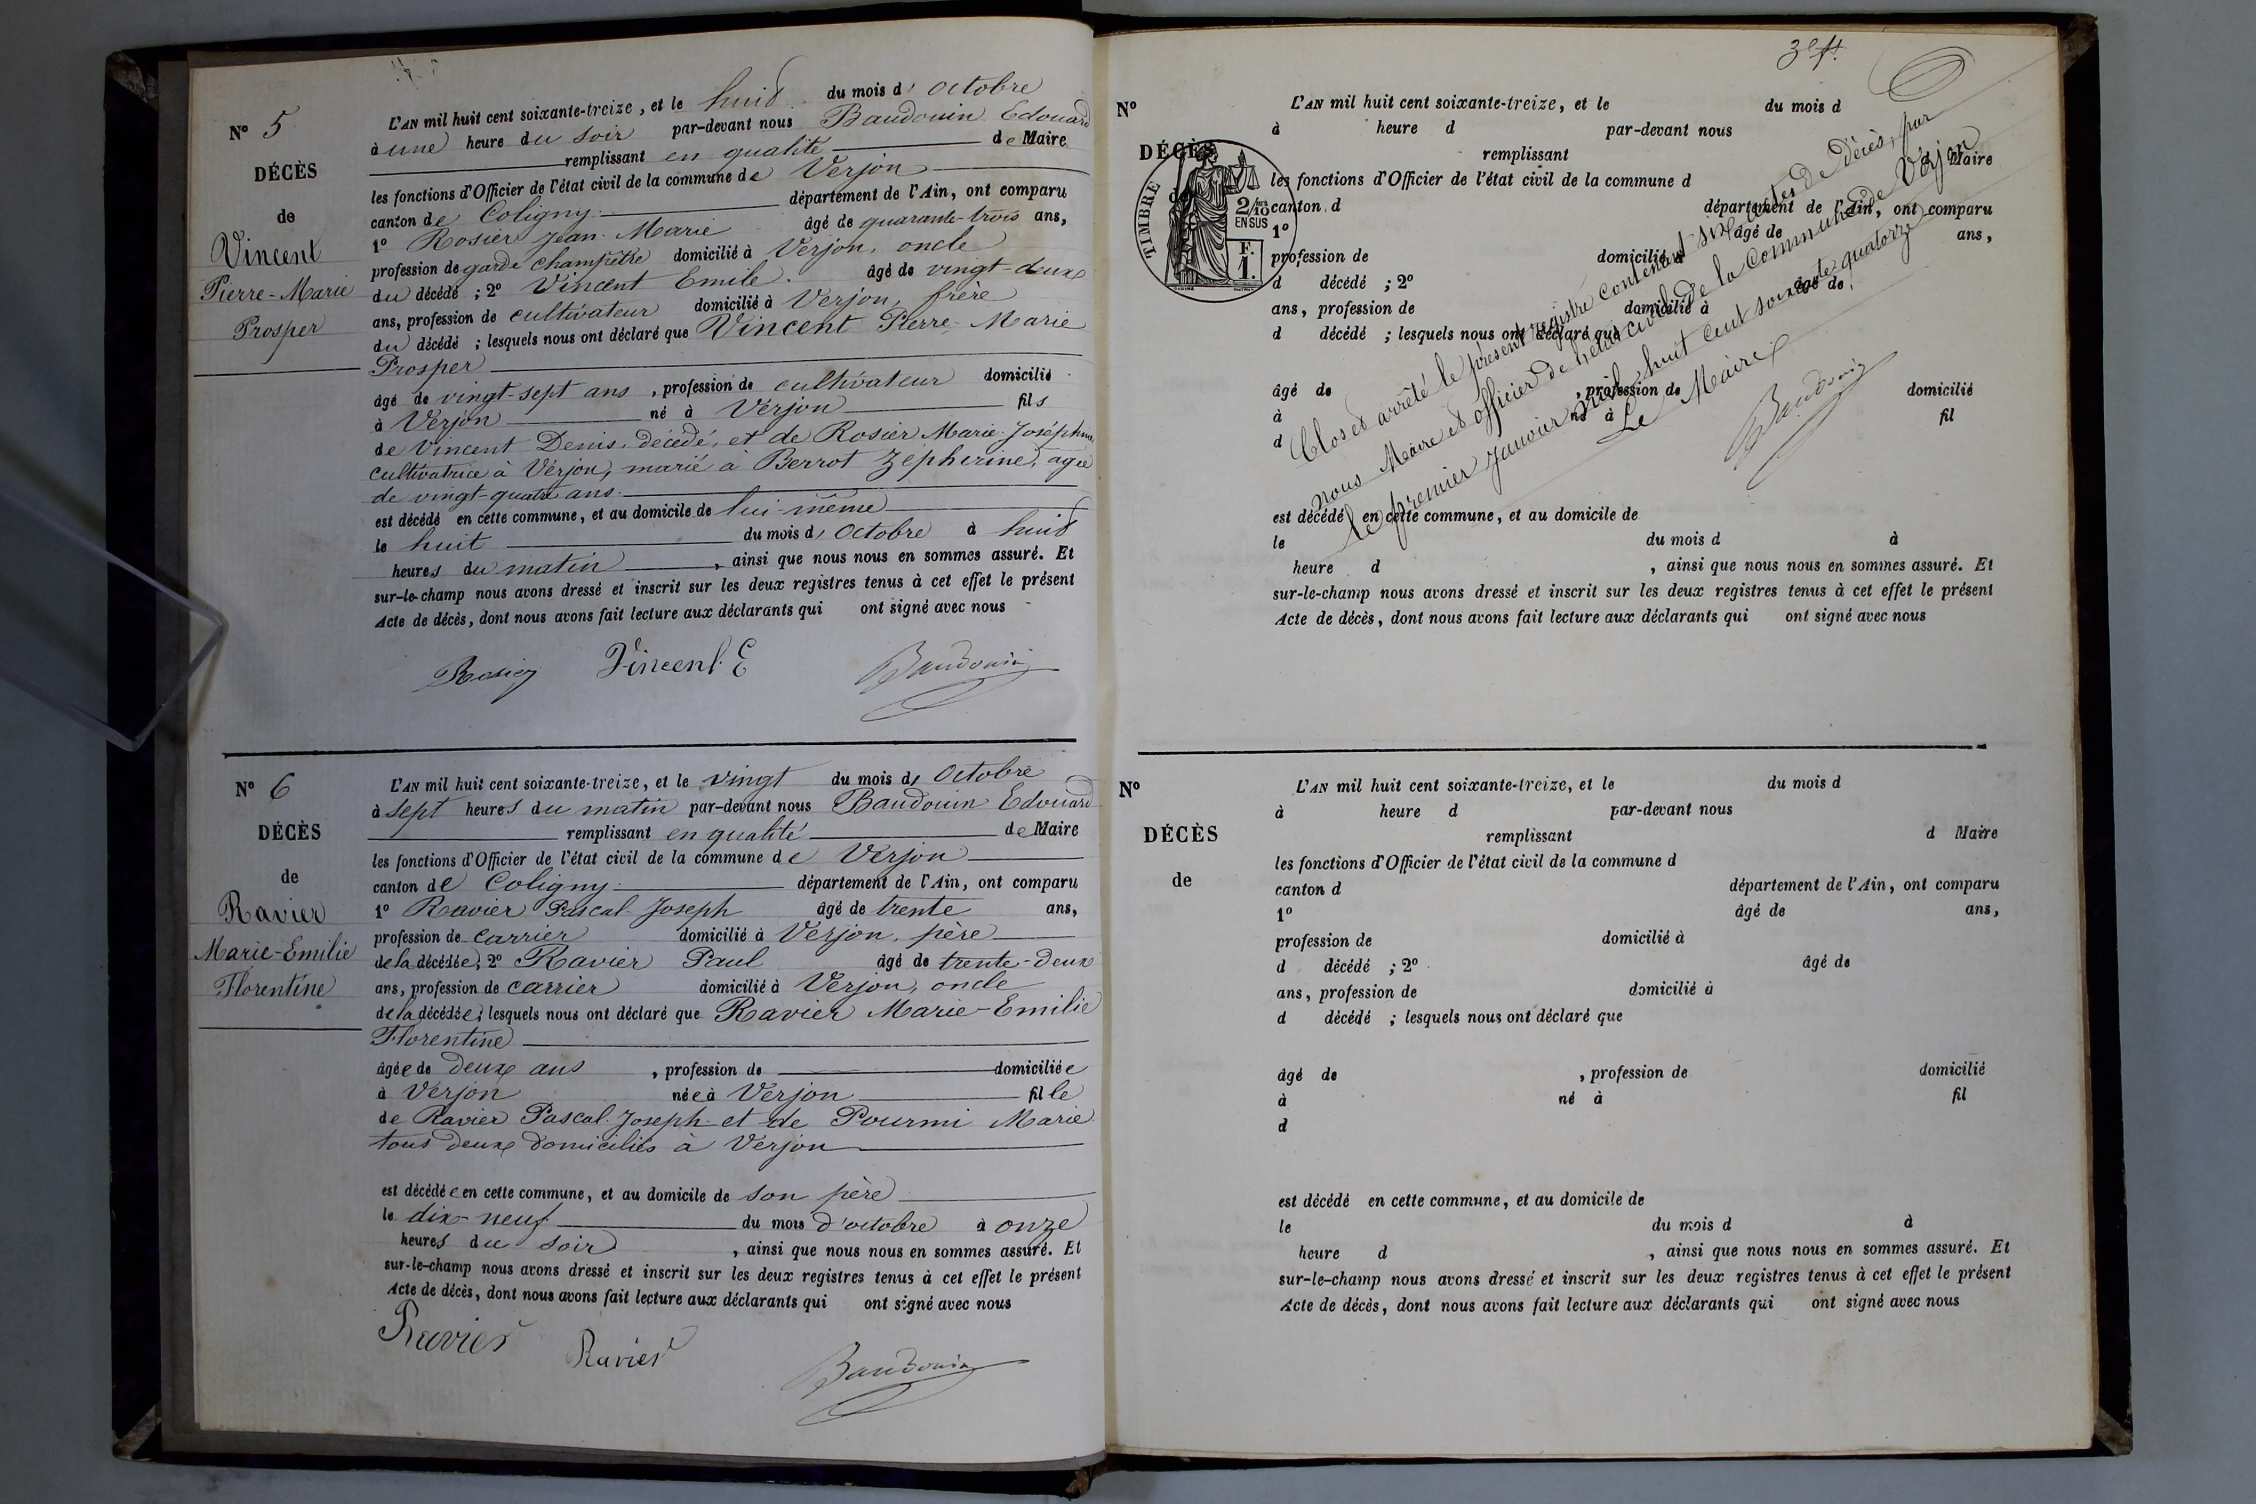 N° 5
DÉCÈS
de
Vincent
Pierre-Marie
Prosper
L'AN mil huit cent soixante-treize, et le huit du mois d'Octobre
à une heure du soir par-devant nous Baudouin Edouard
remplissant en qualité de Maire
les fonctions d'Officier de l'état civil de la commune de Verjon
canton de Coligny département de l'Ain, ont comparu
1° Rosier Jean-Marie âgé de quarante-trois ans,
profession de garde champêtre domicilié à Verjon, oncle
du décédé ; 2° Vincent Emile âgé de vingt-deux
ans, profession de cultivateur domicilié à Verjon, frère
du décédé ; lesquels nous ont déclaré que Vincent Pierre-Marie
Prosper
âgé de vingt-sept ans, profession de cultivateur domicilié
à Verjon né à Verjon fils
de Vincent Denis, décédé, et de Rosier Marie-Joséphine
cultivatrice à Verjon, marié à Berrot Zepherine, agée
de vingt-quatre ans.
est décédé en cette commune, et au domicile de lui-même
le huit du mois d'Octobre à huit
heures du matin, ainsi que nous nous en sommes assuré. Et
sur-le-champ nous avons dressé et inscrit sur les deux registres tenus à cet effet le présent
Acte de décès, dont nous avons fait lecture aux déclarants qui ont signé avec nous
Rosier Vincent. E Baudouin
N° 6
DÉCÈS
de
Ravier
Marie-Emilie
Florentine
L'AN mil huit cent soixante-treize, et le vingt du mois d'Octobre
à sept heures du matin par-devant nous Baudouin Edouard
remplissant en qualité de Maire
les fonctions d'Officier de l'état civil de la commune de Verjon
canton de Coligny département de l'Ain, ont comparu
1° Ravier Pascal-Joseph âgé de trente ans,
profession de carrier domicilié à Verjon, père
de la décédée; 2° Ravier Paul âgé de trente-deux
ans, profession de carrier domicilié à Verjon, oncle
de la décédée; lesquels nous ont déclaré que Ravier Marie-Emilie
Florentine
âgée de deux ans, profession de domiciliée
à Verjon née à Verjon fille
de Ravier Pascal-Joseph et de Pourmi Marie
tous deux domiciliés à Verjon
est décédée en cette commune, et au domicile de son père
le dix-neuf du mois d'octobre à onze
heures du soir, ainsi que nous nous en sommes assuré. Et
sur-le-champ nous avons dressé et inscrit sur les deux registres tenus à cet effet le présent
Acte de décès, dont nous avons fait lecture aux déclarants qui ont signé avec nous
Ravier Ravier Baudouin
N°
DÉCÈS
de
TIMBRE
2/10
EN SUS
F.
1.
L'AN mil huit cent soixante-treize, et le du mois d
à heure d par-devant nous
remplissant d Maire
les fonctions d'Officier de l'état civil de la commune d
canton d département de l'Ain, ont comparu
1° âgé de ans,
profession de domicilié à
d décédé ; 2° âgé de
ans, profession de domicilié à
d décédé ; lesquels nous ont déclaré que
âgé de , profession de domicilié
à né à fil
d
est décédé en cette commune, et au domicile de
le du mois d à
heure d , ainsi que nous nous en sommes assuré. Et
sur-le-champ nous avons dressé et inscrit sur les deux registres tenus à cet effet le présent
Acte de décès, dont nous avons fait lecture aux déclarants qui ont signé avec nous
Clos et arrêté le présent registre contenant six actes de Décès, par
nous Maire et officier de l'état civil de la Commune de Verjon
le premier Janvier mil huit cent soixante quatorze
Le Maire
Baudouin
N°
DÉCÈS
de
L'AN mil huit cent soixante-treize, et le du mois d
à heure d par-devant nous
remplissant d Maire
les fonctions d'Officier de l'état civil de la commune d
canton d département de l'Ain, ont comparu
1° âgé de ans,
profession de domicilié à
d décédé ; 2° âgé de
ans, profession de domicilié à
d décédé ; lesquels nous ont déclaré que
âgé de , profession de domicilié
à né à fil
d
est décédé en cette commune, et au domicile de
le du mois d à
heure d , ainsi que nous nous en sommes assuré. Et
sur-le-champ nous avons dressé et inscrit sur les deux registres tenus à cet effet le présent
Acte de décès, dont nous avons fait lecture aux déclarants qui ont signé avec nous